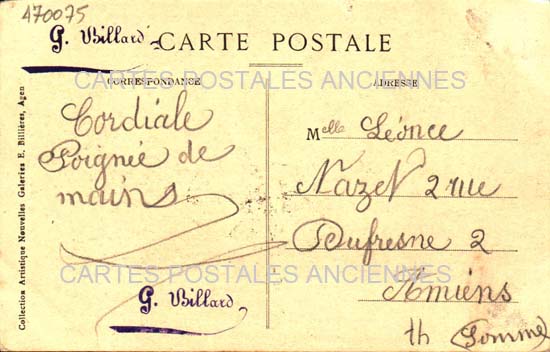 470075
G. Billard
CARTE POSTALE
CARTES POSTALES ANCIENNES
CORRESPONDANCE
ADRESSE
Cordiale
Poignée de
mains
G. Billard
Melle Léonce
Nazet 2 rue
Dufresne 2
Amiens
(Somme)
CARTES POSTALES ANCIENNES
Collection Artistique Nouvelles Galeries E. Billières, Agen